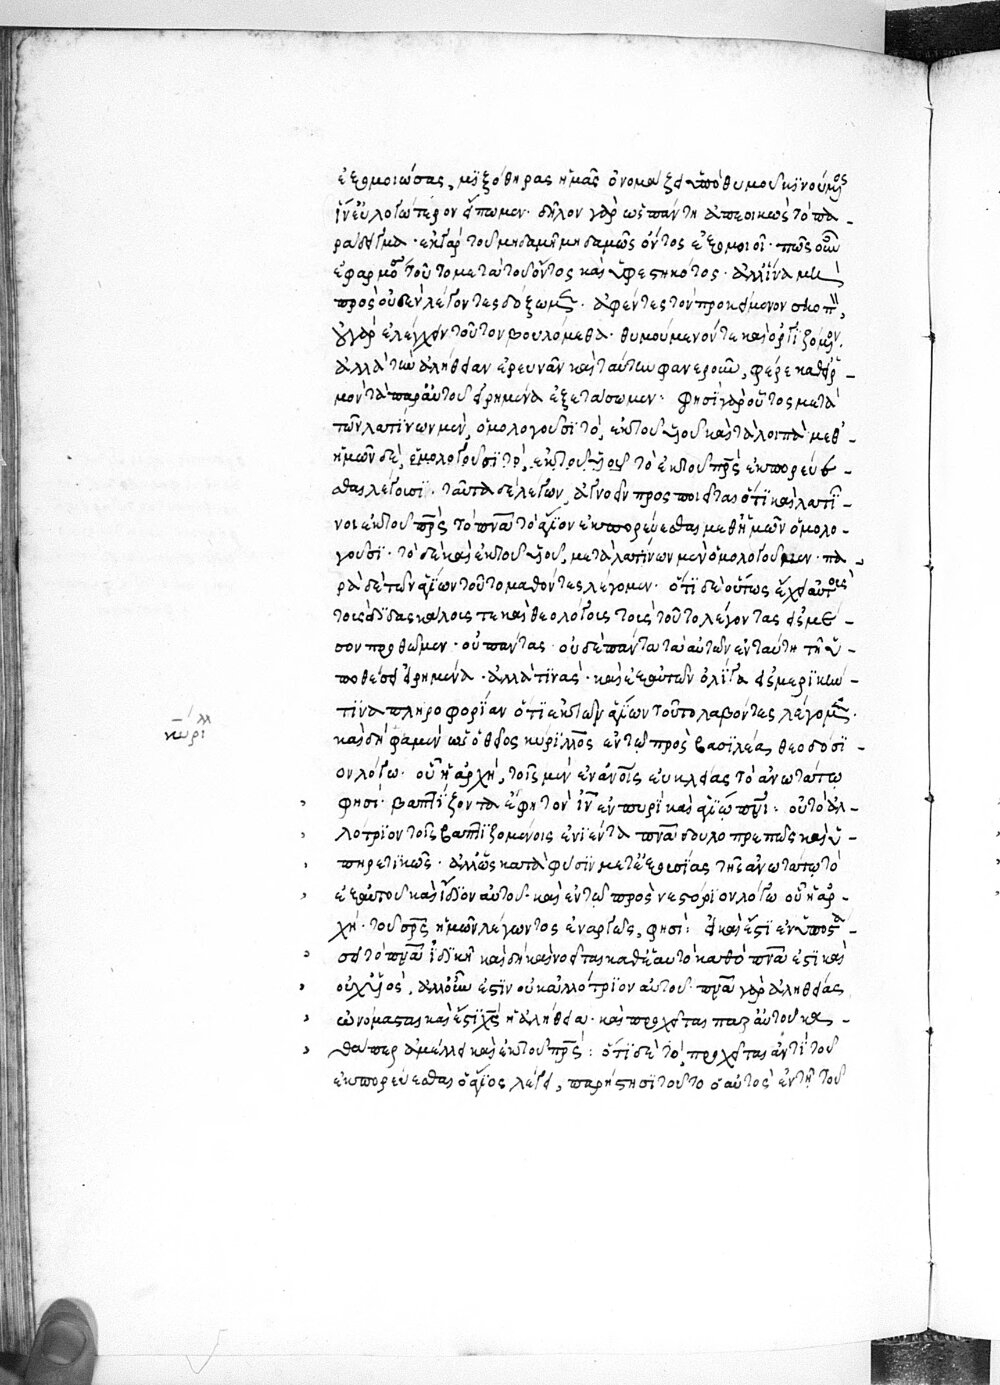 ἐξομοιώσας, μιξόθηρας ἡμᾶς ὀνομάζει ὑπὸ θυμοῦ κινούμενος
ἵν' εὐλογώτερον εἴπωμεν· δῆλον γὰρ ὡς πάντη ἀπεοικὼς τὸ πα-
ράδειγμα· ἐκ γὰρ τοῦ μηδαμῆ μηδαμῶς ὄντος ἐξομοιοῖ· πῶς οὖν
ἐφαρμόσει τοῦτο μετὰ τοῦ ὄντος καὶ ὑφεστηκότος· ἀλλ' ἵνα μὴ
πρὸς οὐδὲν λέγοντες δόξωμεν· ἀφέντες τὸν προκείμενον σκοπόν,
οὐ γὰρ ἐλέγχειν τοῦτον βουλόμεθα· θυμούμενόν τε καὶ ὀργιζόμενον,
ἀλλὰ τὴν ἀλήθειαν ἐρευνᾶν καὶ ταύτην φανεροῦν, φέρε καθ' εἱρ-
μὸν τὰ παρ' αὐτοῦ εἰρημένα ἐξετάσωμεν· φησὶ γὰρ οὗτος μετὰ
τῶν λατίνων μὲν, ὁμολογοῦσι τὸ, ἐκ τοῦ υἱοῦ καὶ τὰ λοιπὰ· μεθ'
ἡμῶν δὲ, ὁμολογοῦσι τὸ, ἐκ τοῦ υἱοῦ τὸ ἐκ τοῦ πρς ἐκπορεύε-
σθαι λέγουσι· ταῦτα δὲ λέγων, ἀγνοεῖν προσποιεῖται ὅτι καὶ λατῖ-
νοι ἐκ τοῦ πρς τὸ πνα τὸ ἅγιον ἐκπορεύεσθαι μεθ' ἡμῶν ὁμολο-
γοῦσι· τὸ δὲ καὶ ἐκ τοῦ υἱοῦ, μετὰ λατίνων μὲν ὁμολογοῦμεν· πα-
ρὰ δὲ τῶν ἁγίων τοῦτο μαθόντες λέγομεν· ὅτι δὲ οὕτως ἔχει αὐτοὺς
τοὺς διδασκάλους τε καὶ θεολόγους τοὺς τοῦτο λέγοντας εἰς μέ-
σον προθῶμεν· οὐ πάντας· οὐδὲ πάντα τὰ αὐτῶν ἐν ταύτη τῆ ὑ-
ποθέσει εἰρημένα· ἀλλὰ τινὰς· καὶ ἐξ αὐτῶν ὀλίγα εἰς μερικήν
τινα πληροφορίαν ὅτι ἐκ τῶν ἁγίων τοῦτο λαβόντες λέγομεν·
καὶ δὴ φαμὲν ὡς ὁ θεῖος κύριλλος ἐν τῶ πρὸς βασιλέα θεοδόσι-
ον λόγω· οὗ ἡ ἀρχὴ, τοῖς μὲν ἐν ἀνοις εὐκλείας τὸ ἀνωτάτω
φησί· βαπτίζοντα ἔφη τὸν ιν ἐν πυρὶ καὶ ἁγίω πνι· οὐ τὸ ἀλ-
λότριον τοῖς βαπτιζομένοις ἐνιέντα πνα δουλοπρεπῶς καὶ ὑ-
πηρετικῶς· ἀλλ' ὡς κατὰ φύσιν μετ' ἐξουσίας τῆς ἀνωτάτω τὸ
ἐξ αὐτοῦ καὶ ἴδιον αὐτοῦ· καὶ ἐν τῶ πρὸς νεστόριον λόγω οὗ ἡ ἀρ-
χή· τοῦ σρς ἡμῶν λέγοντος ἐναργῶς, φησί: εἰ καὶ ἔστιν ἐν ὑποστά-
σει τὸ πνα ἰδικῆ καὶ δὴ καὶ νοεῖται καθ' ἑαυτὸ καθὸ πνα ἐστὶ καὶ
οὐχ υἱὸς, ἀλλ' οὖν ἐστὶν οὐκ ἀλλότριον αὐτοῦ· πνα γὰρ ἀληθείας
ὠνόμασται καὶ ἔστι χς ἡ ἀλήθεια· καὶ προχεῖται παρ' αὐτοῦ κα-
θάπερ ἀμέλει καὶ ἐκ τοῦ πρς: ὅτι δὲ τὸ, προχεῖται ἀντὶ τοῦ
ἐκπορεύεσθαι ὁ ἅγιος λέγει, παρίστησι τοῦτο ὁ αὐτὸς ἐν τῆ τοῦ
κυρίλλ